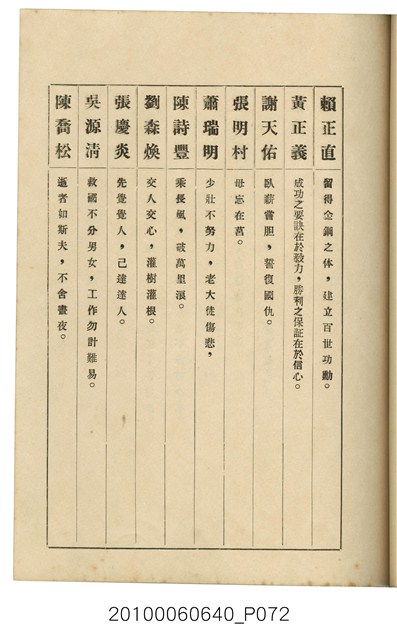 賴正直 留得金鋼之体，建立百世功勳。
黃正義 成功之要訣在於毅力，勝利之保証在於信心。
謝天佑 臥薪嘗胆，誓復國仇。
張明村 毋忘在莒。
蕭瑞明 少壯不努力，老大徒傷悲，
陳詩豐 乘長風，破萬里浪。
劉森煥 交人交心，灌樹灌根。
張慶炎 先覺覺人，己達達人。
吳源清 救國不分男女，工作勿計難易。
陳喬松 逝者如斯夫，不舍晝夜。
20100060640_P072